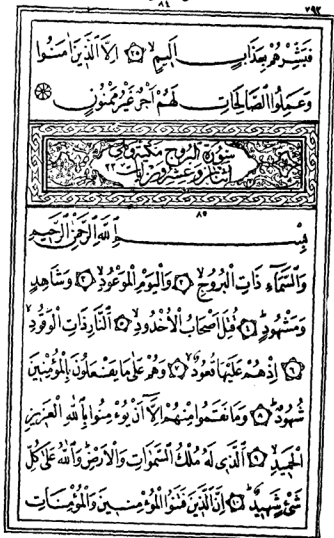 ٨٤
٢٩٢
فَبَشِّرْهُمْ بِعَذَابٍ اَلِيمٍۙ ﴿٢٥﴾ اِلَّا الَّذِينَ اٰمَنُوا
وَعَمِلُوا الصَّالِحَاتِ لَهُمْ اَجْرٌ غَيْرُ مَمْنُونٍ
سورة البروج مكية وهي
اثنتان وعشرون آيات
٨٥
بِسْمِ اللّٰهِ الرَّحْمٰنِ الرَّحِيمِ
وَالسَّمَاءِ ذَاتِ الْبُرُوجِۙ ﴿١﴾ وَالْيَوْمِ الْمَوْعُودِۙ ﴿٢﴾ وَشَاهِدٍ
وَمَشْهُودٍۜ ﴿٣﴾ قُتِلَ اَصْحَابُ الْاُخْدُودِۙ ﴿٤﴾ اَلنَّارِ ذَاتِ الْوَقُودِۙ
﴿٥﴾ اِذْ هُمْ عَلَيْهَا قُعُودٌۙ ﴿٦﴾ وَهُمْ عَلٰى مَا يَفْعَلُونَ بِالْمُؤْمِنِينَ
شُهُودٌۜ ﴿٧﴾ وَمَا نَقَمُوا مِنْهُمْ اِلَّا اَنْ يُؤْمِنُوا بِاللّٰهِ الْعَزِيزِ
الْحَمِيدِۙ ﴿٨﴾ اَلَّذِي لَهُ مُلْكُ السَّمٰوَاتِ وَالْاَرْضِۜ وَاللّٰهُ عَلٰى كُلِّ
شَيْءٍ شَهِيدٌۜ ﴿٩﴾ اِنَّ الَّذِينَ فَتَنُوا الْمُؤْمِنِينَ وَالْمُؤْمِنَاتِ